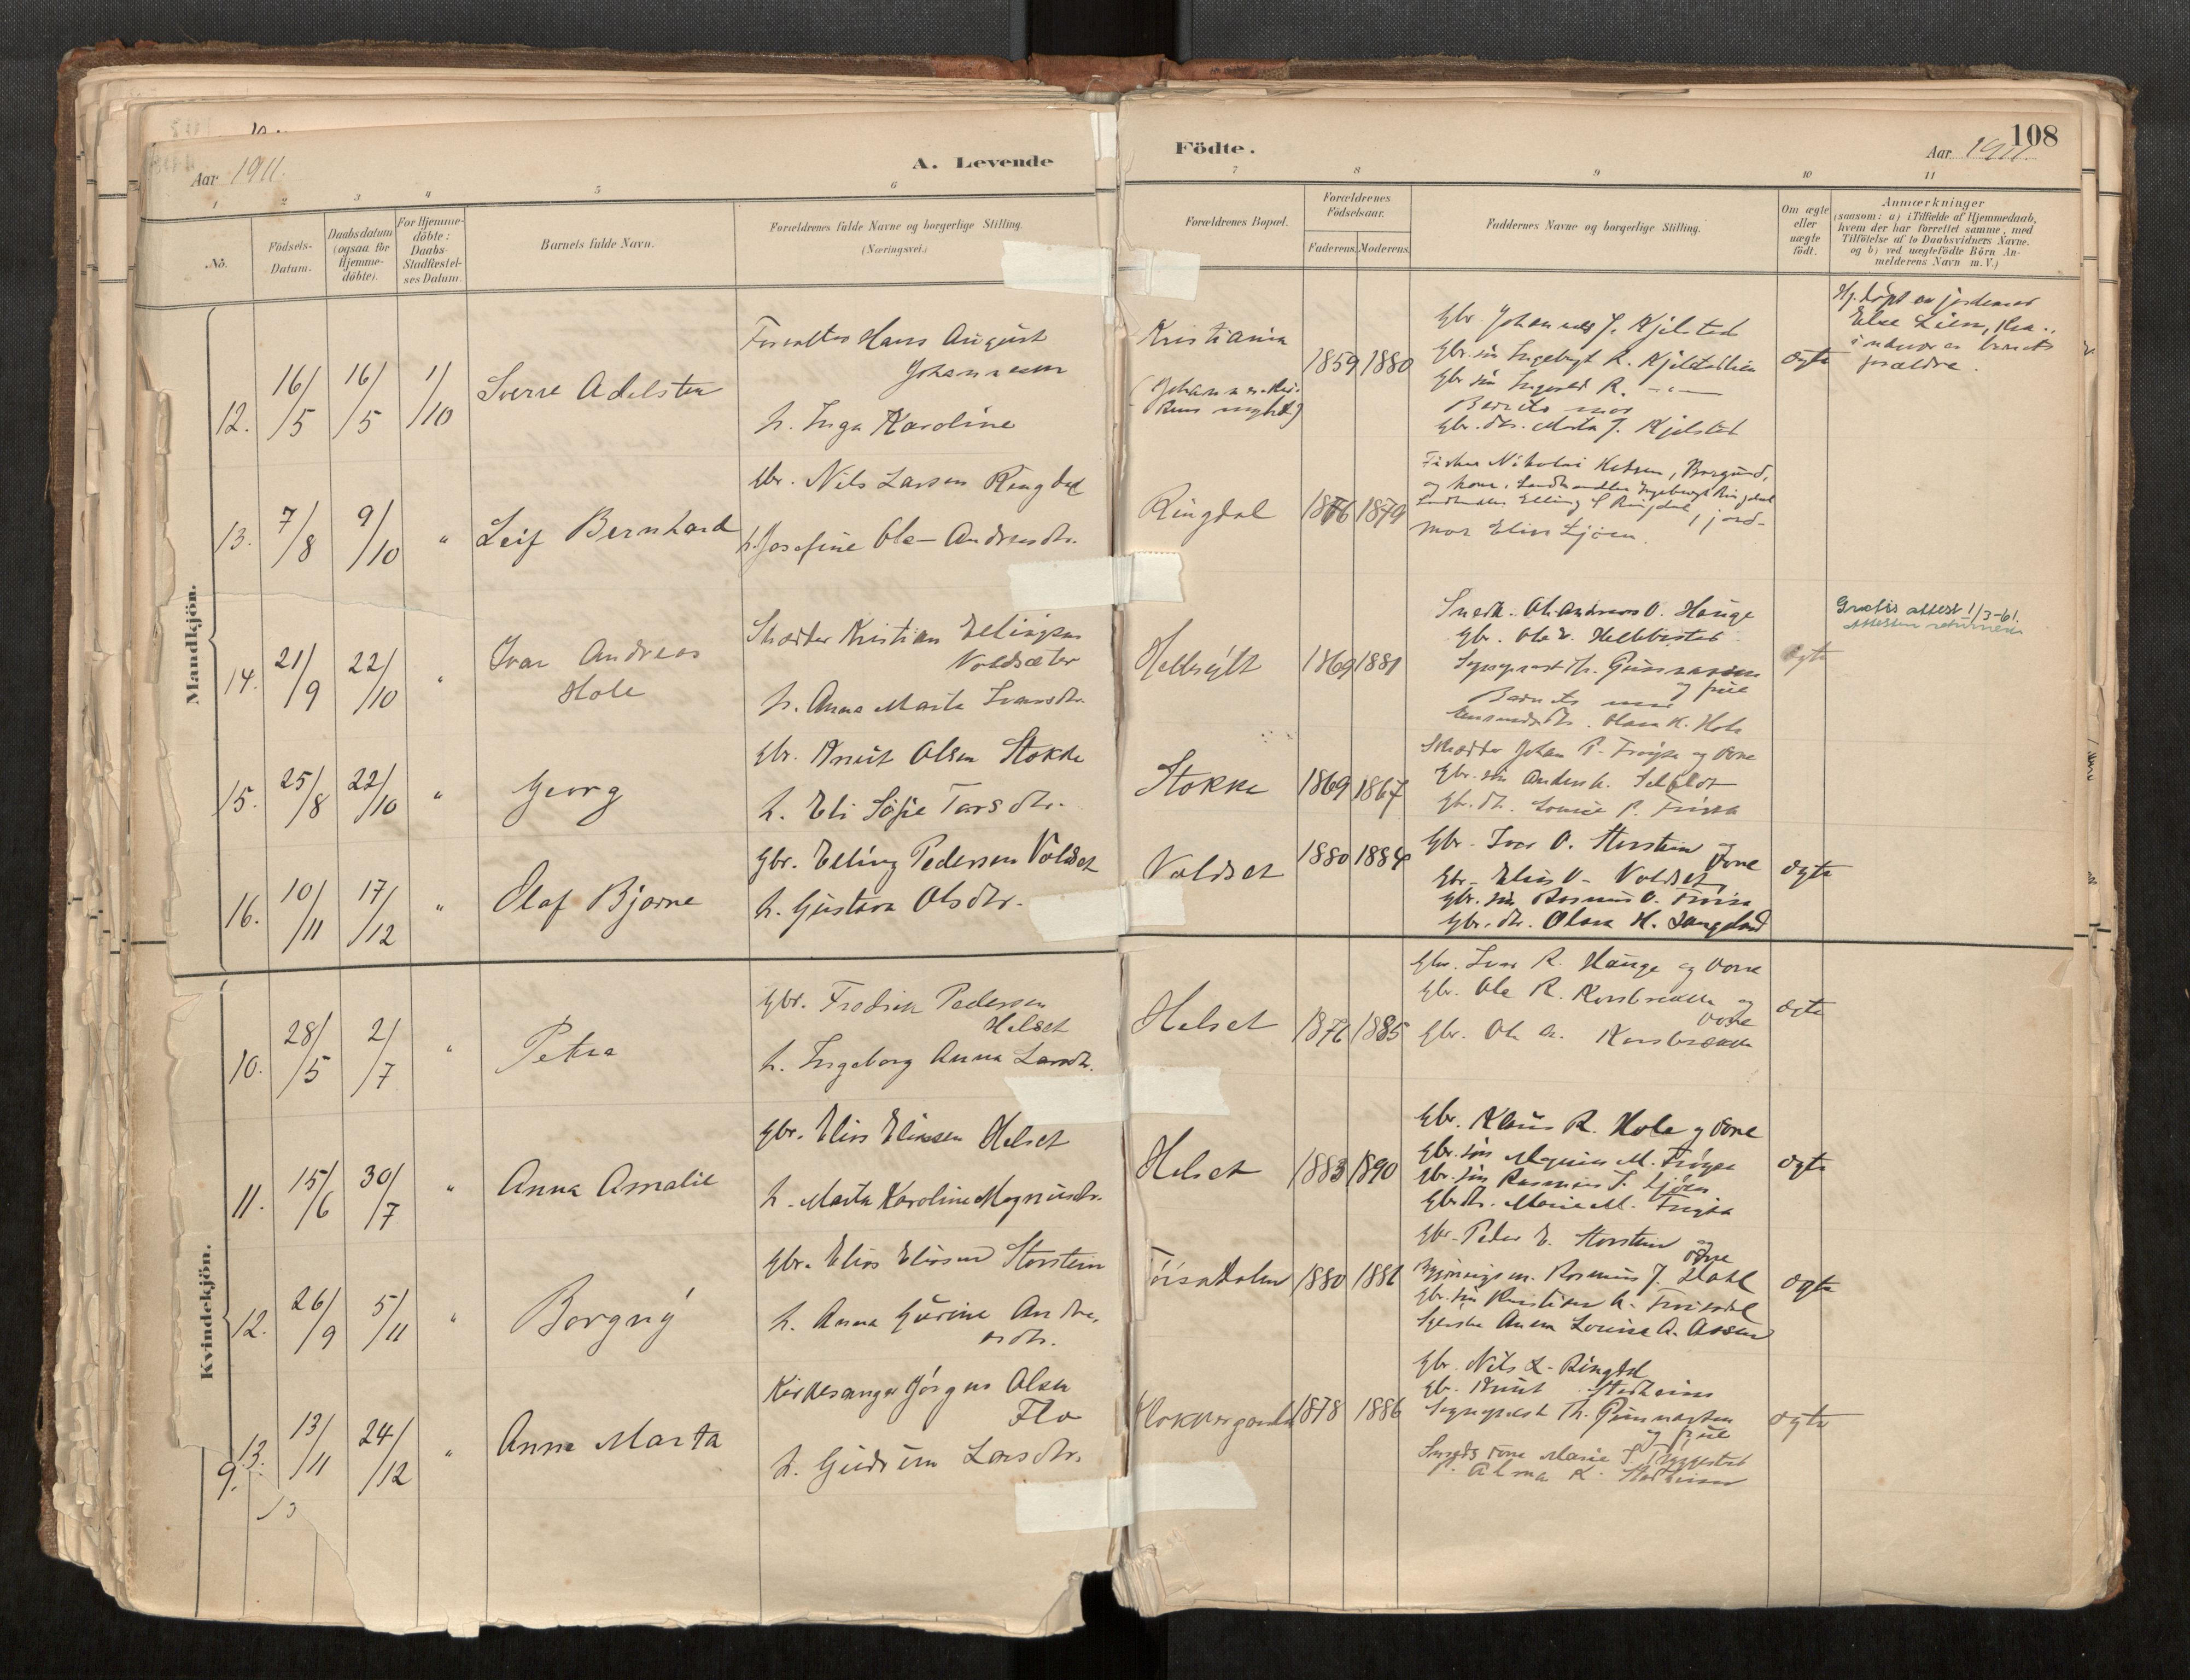 108
Aar 1911.
A. Levende
Födte.
Aar 1911.
1 2 3 4 5 6 7 8 9 10 11
No.
Födsels-
Datum.
Daabsdatum
(ogsaa for
Hjemme-
döbte).
For Hjemme-
döbte:
Daabs-
Stadfæstel-
ses Datum.
Barnets fulde Navn.
Forældrenes fulde Navne og borgerlige Stilling.
(Næringsvei.)
Forældrenes Bopæl.
Forældrenes
Födselsaar.
Faderens.
Moderens.
Faddernes Navne og borgerlige Stilling.
Om ægte
eller
uægte
födt.
Anmærkninger
(saasom: a) i Tilfælde af Hjemmedaab,
hvem der har forrettet samme, med
Tilföielse af to Daabsvidners Navne.
og b) ved uægtefödte Börn An-
melderens Navn m. V.)
Mandkjön.
12. 16/5 16/5 1/10
Sverre Adelsten
Hans August
Johannesen
h. Inga Karoline
Kristiania
1859 1880
Gbr. Johannes J. Kjelstad
Gbr. sön Ingebrigt R.
Gbr. sön Ingvald R.
Barnets mor
Gbr. dtr. Marta J. Kjelstad
ægte
Hj. döpt av jordemor
Else Lien,
barnets
forældre.
13. 7/8 9/10 "
Leif Bernhard
Gbr. Nils Larsen Ringdal
h. Josefine Ole-Andreasdtr.
Ringdal
1876 1879
Fisker Nikolai Borgund,
og kone, Landhandler Ingebrigt Ringdal
Elling Ringdal, jord-
mor Elise Ljöen.
14. 21/9 22/10 "
Ivar Andreas
Hole
Skrædder Kristian Ellingsen
Voldsæter
h. Anna Marta Ivarsdtr.
Hellesylt
1869 1881
Snedk. Ole Andreas O. Hauge
Gbr. Ole
Sogneprest Th. Gunnarson
og frue
Barnets mor
Olava K. Hole
ægte
Gratis attest 1/3-61.
Attesten
15. 25/8 22/10 "
Georg
Gbr. Knut Olsen Stokke
h. Eli Sofie Larsdtr.
Stokke
1869 1867
Skrædder Johan P. og kone
Gbr. sön Anders
Gbr. dtr. Louise P.
16. 10/11 17/12 "
Olaf Bjarne
Gbr. Elling Pedersen Voldset
h. Gustava Olsdtr.
Voldset
1880 1884
Gbr. Ivar O. Storstein og
kone
Gbr. Elias O. Voldset
Gbr. sön Rasmus O.
Gbr. dtr. Olava H. Langeland
ægte
Kvindekjön.
10. 28/5 2/7 "
Petra
Gbr. Fredrik Pedersen
Helset
h. Ingeborg Anna Larsdtr.
Helset
1876 1885
Gbr. Ivar R. Hauge og kone
Gbr. Ole R. Korsbrekke og
kone
Gbr. Ole A. Korsbrekke
ægte
11. 15/6 30/7 "
Anna Amalie
Gbr. Elias Eliassen Helset
h. Marta Karoline Magnusdtr.
Helset
1883 1890
Gbr. Klaus R. Hole og kone
Gbr. sön Magnus M.
Gbr. sön Rasmus J. Ljöen
Gbr. dtr. Marie M.
ægte
12. 26/9 5/11 "
Borgny
Gbr. Elias Eliasen Storstein
h. Anna Gurine Andre-
asdtr.
1880 1881
Gbr. Peder E. Storstein og
kone
Rasmus J.
Gbr. sön Kristian A.
Anna Louise A.
ægte
13. 13/11 24/12 "
Anne Marta
Kirkesanger Jörgen Olsen
Flo
h. Gudrun Larsdtr.
Klokkergaarden
1878 1886
Gbr. Nils L. Ringdal
Gbr. Knut Stadheim
Sogneprest Th. Gunnarson
og frue
kone Marie S.
Alma K. Stadheim
ægte
9.